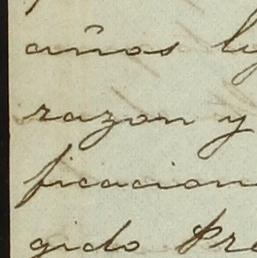 años
razon y
ficacion
gido Pre